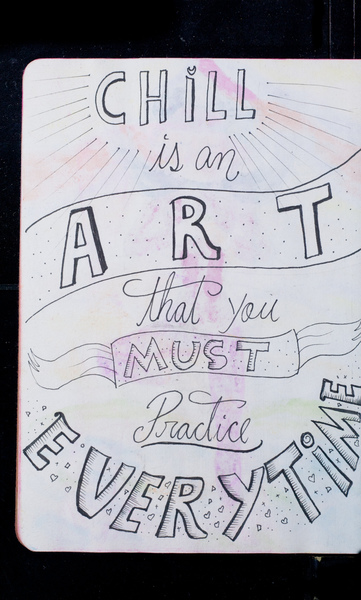 CHiLL
is an
ART
that you
MUST
Practice
EVERYTiME